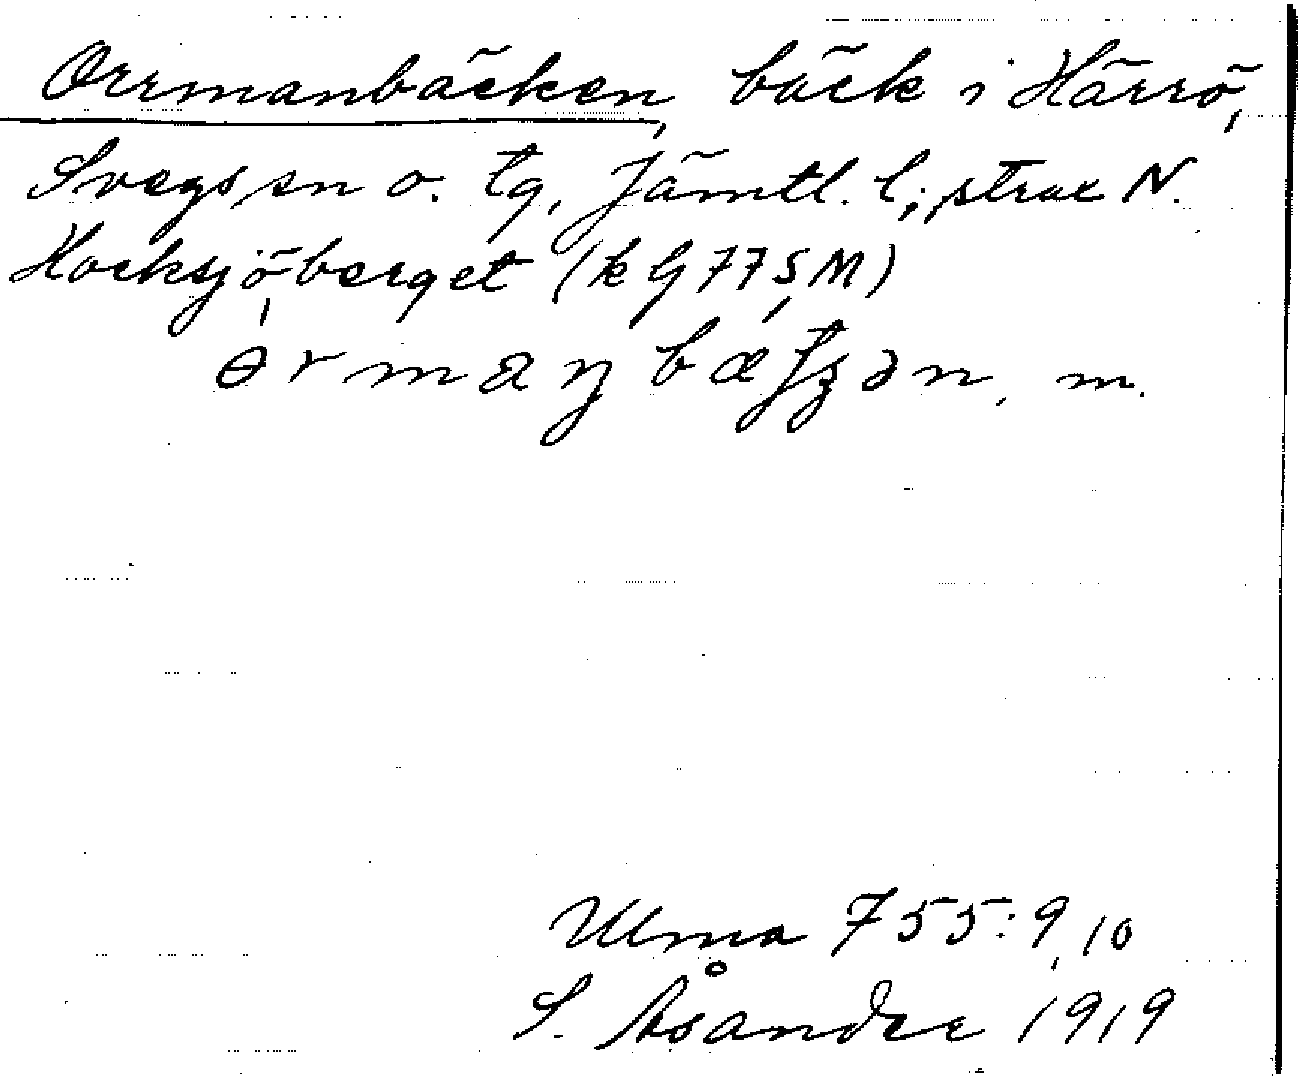 Orrmanbäcken, bäck i Härrö,
Svegs sn o. tg, Jämtl. l; strax N.
Hocksjöberget (k G77SM)
ɵrmaŋbæʈʂən, m.
Ulma 755: 9, 10
S. Åsander 1919